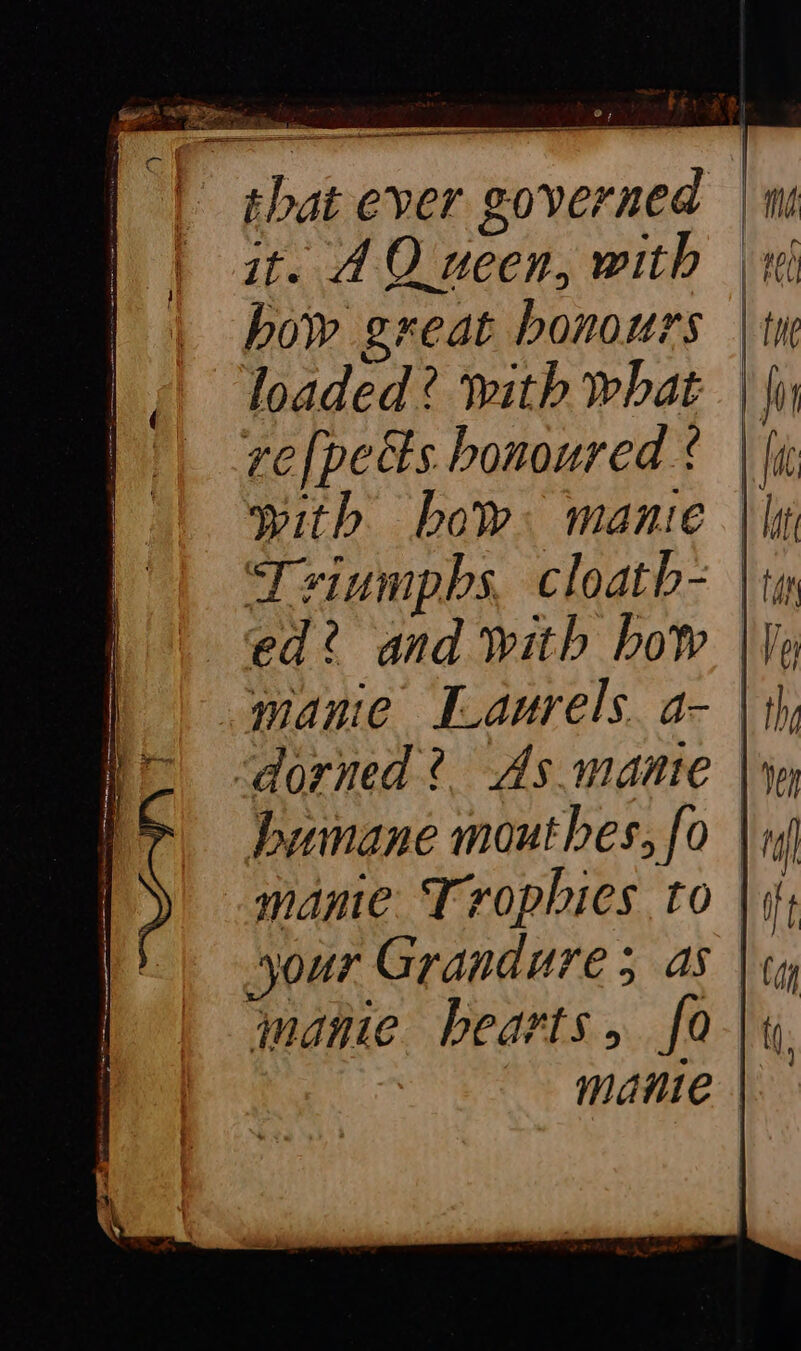 that ever governed
it. A Queen, with
how great honours
loaded? with what
reſpects honoured?
with how manie
Triumphs cloath-
ed? and with how
manie Laurels a-
dorned? As manie
humane mouthes, ſo
manie Trophies to
your Grandure; as
manie hearts, ſo
manie